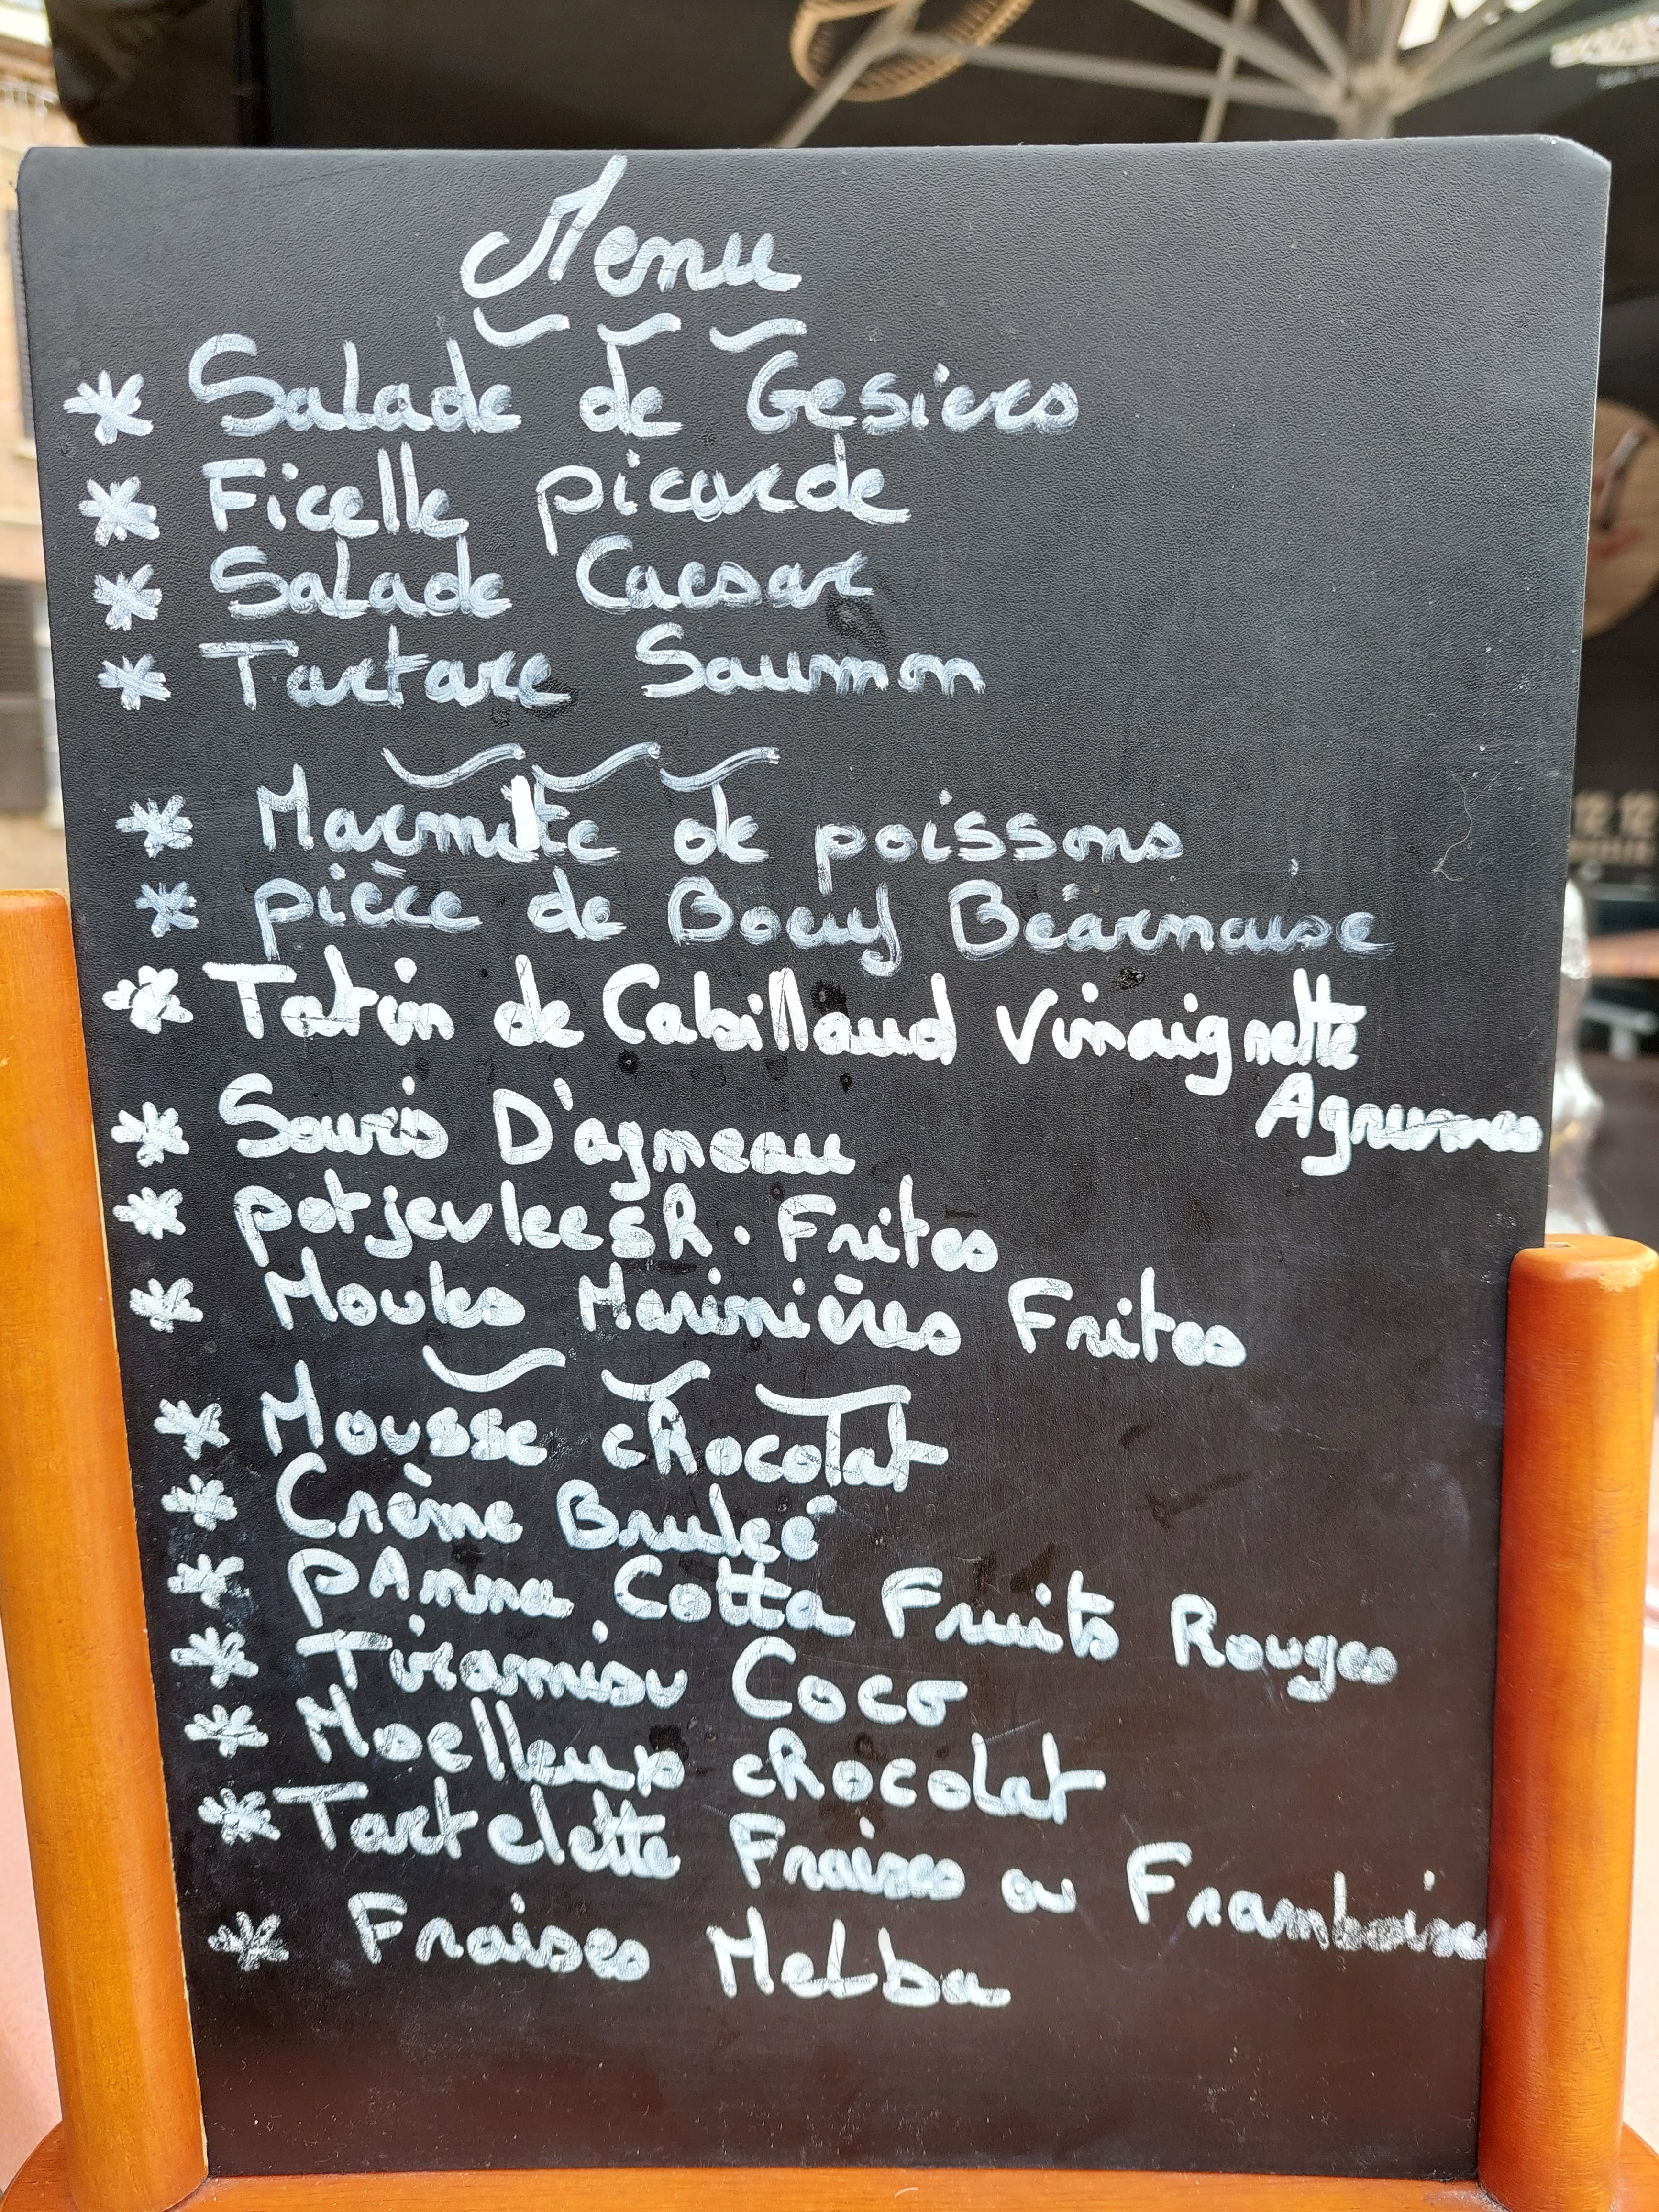 Menu
* Salade de Gesiers
* Ficelle picarde
* Salade Caesar
* Tartare Saumon
* Marmite de poissons
* pièce de Boeuf Béarnaise
* Tatin de Cabillaud Vinaigrette
Agrumes
* Souris D'agneau
* potjevleesh. Frites
* Moules Marinières Frites
* Mousse chocolat
* Crème Bruleé
* PAnna Cotta Fruits Rouges
* Tiramisu Coco
* Moelleux chocolat
* Tartelette Fraises ou Framboises
* Fraises Melba
12 12